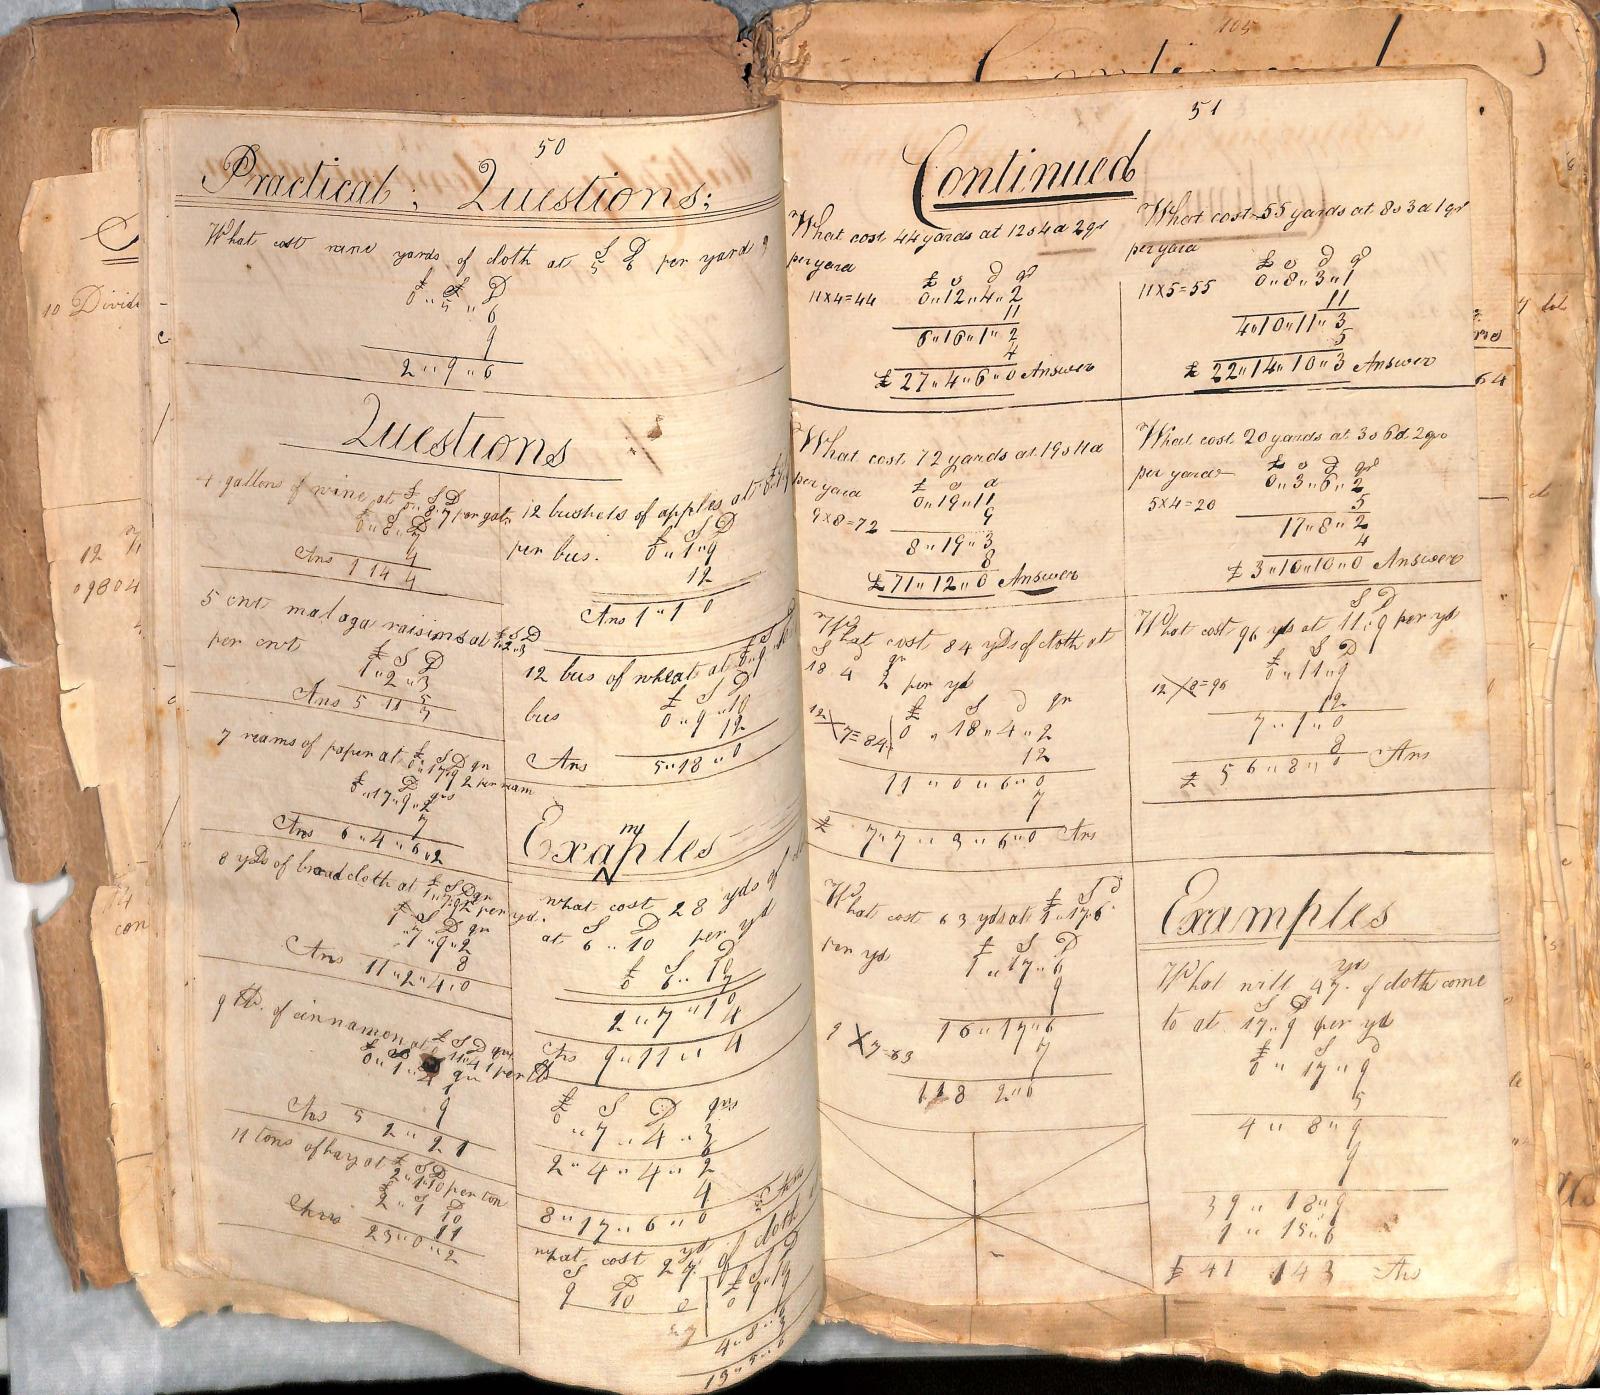 50
Practical; Questions;
What cost nine yards of cloth at
S D
5 6 per yard
£ S D
0 " 5 " 6
9
2 " 9 " 6
Questions
4 gallons of wine at £ S D
0 " 8 " 7 per gal
0 " 8 " 7
4
Ans 1 14 4
5 cnt malaga raisins at £ S D
1 " 2 " 3
per cnt
£ S D
1 " 2 " 3
5
Ans 5 11 3
7 reams of paper at £ S D qr
0 " 17 " 9 2 per ream
£ D qrs
0 " 17 " 9 " 2
7
Ans 6 " 4 " 6 " 2
8 yds of broad cloth at £ S D qr
1 " 7 " 9 2 per yd.
£ S D qr
1 " 7 " 9 " 2
8
Ans 11 " 2 " 4 " 0
9 lb. of cinnamon at £ S D qrs
11 " 4 1 per lb
9
Ans 5 2 " 2 1
11 tons of hay at £ S D
2 " 1 " 10 per ton
£ S D
2 " 1 10
11
Ans 23 " 0 " 2
12 bushels of apples at
per bus.
£ S D
0 " 1 " 9
12
Ans 1 " 1 0
12 bus of wheat at
bus
£ S D
0 " 9 " 10
12
Ans 5 " 18 " 0
Exaples
m
what cost 28 yds of
at S D
6 " 10 per yd
£ S D
0 6 " 10
7
2 " 7 " 10
4
Ans 9 " 11 " 4
£ S D qrs
0 " 7 " 4 " 3
6
2 " 4 " 4 " 2
4
8 " 17 " 6 " 0 Ans
what cost 27 yd of cloth
S D
9 10
4 " 8 " 6
3
13 " 5 " 6
51
Continued
What cost 44 yards at 12s 4d 2qr
per yard
£ s d qr
11 X 4 = 44
0 " 12 " 4 " 2
11
6 " 16 " 1 " 2
4
£ 27 " 4 " 6 " 0 Answer
What cost 55 yards at 8s 3d 1qr
per yard
£ s d qr
11 X 5 = 55
0 " 8 " 3 " 1
11
4 " 10 " 11 " 3
5
£ 22 " 14 " 10 " 3 Answer
What cost 72 yards at 19s 11d
per yard
£ s d
0 " 19 " 11
9 X 8 = 72
9
8 " 19 " 3
8
£ 71 " 12 " 0 Answer
What cost 20 yards at 3s 6d 2qrs
per yard
£ s d qr
0 " 3 " 6 " 2
5 X 4 = 20
5
17 " 8 " 2
4
£ 3 " 10 " 10 " 0 Answer
What cost 84 yds of cloth at
S d qr
18 4 2 per yd
£ S D qr
12 X 7 = 84
0 " 18 " 4 " 2
12
11 " 0 " 6 " 0
7
£ 7 " 7 " 3 " 6 " 0 Ans
What cost 96 yds at S D
11 " 9 per yd
£ S D
0 " 11 " 9
12 X 8 = 96
12
7 " 1 " 0
8
£ 5 6 " 8 " 0 Ans
What cost 63 yds at £ S d
1 " 17 " 6
per yd
£ S D
1 " 17 " 6
9
16 " 17 " 6
9 X 7 = 63
7
118 2 " 6
Examples
yds
What will 47. of cloth come
to at S D
17 " 9 per yd
£ S d
0 " 17 " 9
5
4 " 8 " 9
9
39 " 18 " 9
1 " 15 " 6
£ 41 14 3 Ans
105
10 Divid
12
09804
con
64